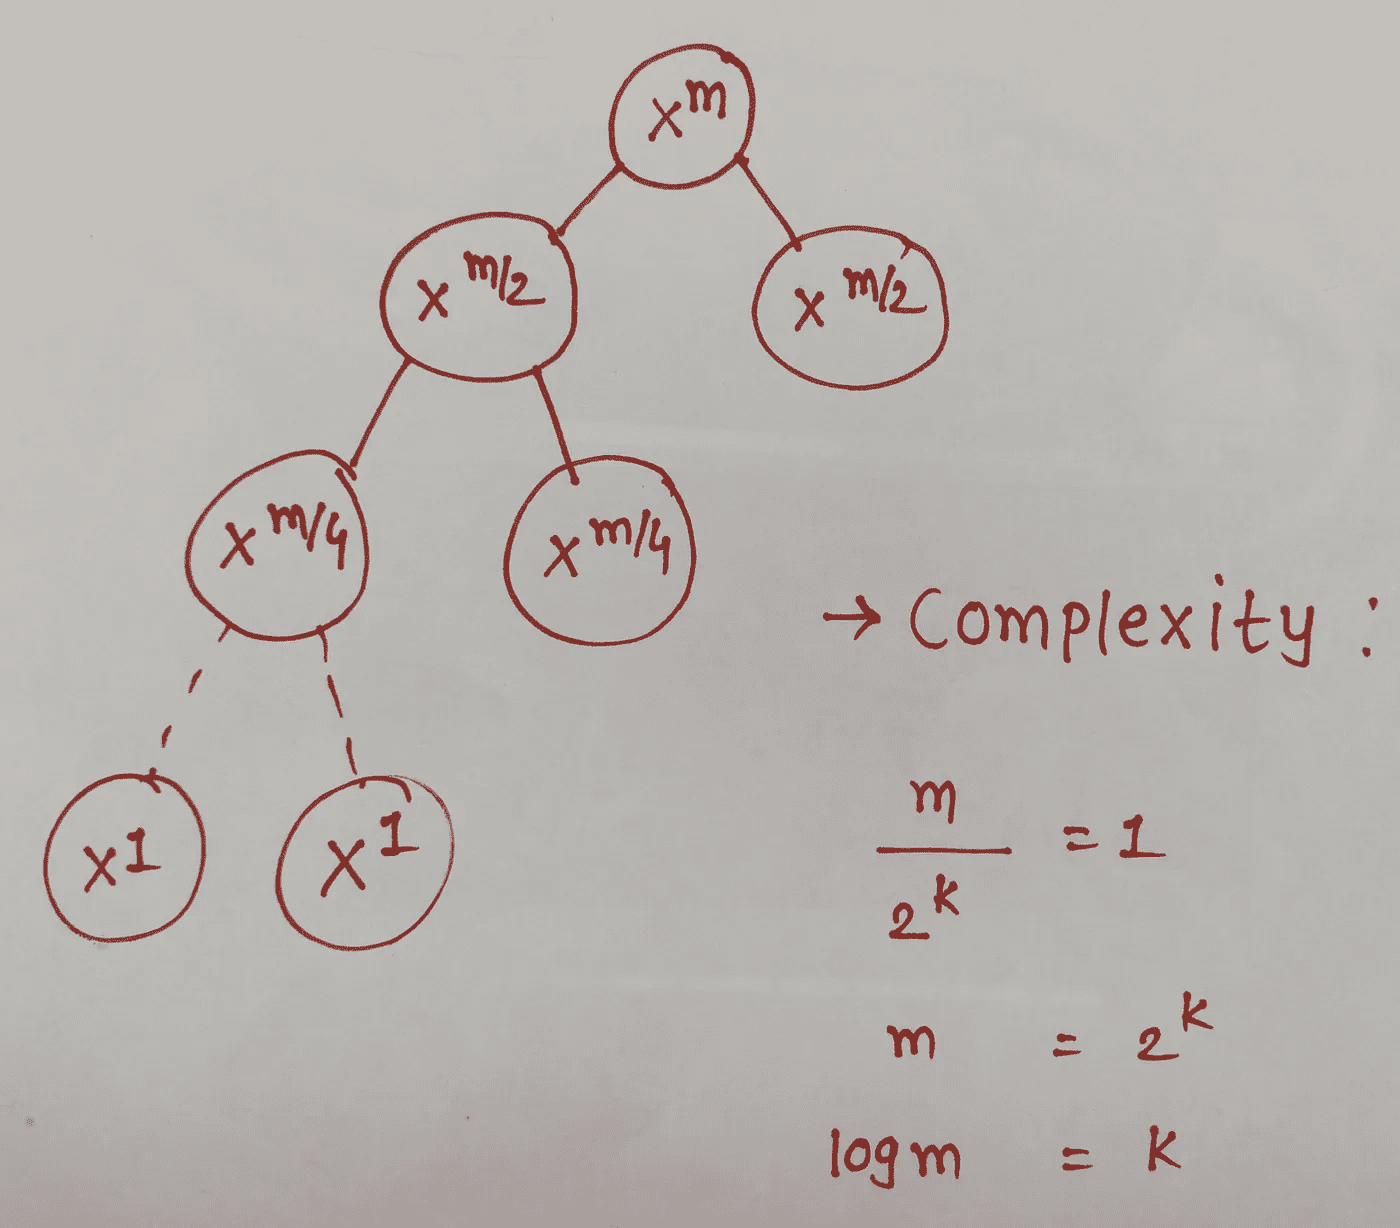 x^m
x^m/2
x^m/2
x^m/4
x^m/4
x^1
x^1
→ Complexity :
m / 2^k = 1
m = 2^k
log m = k